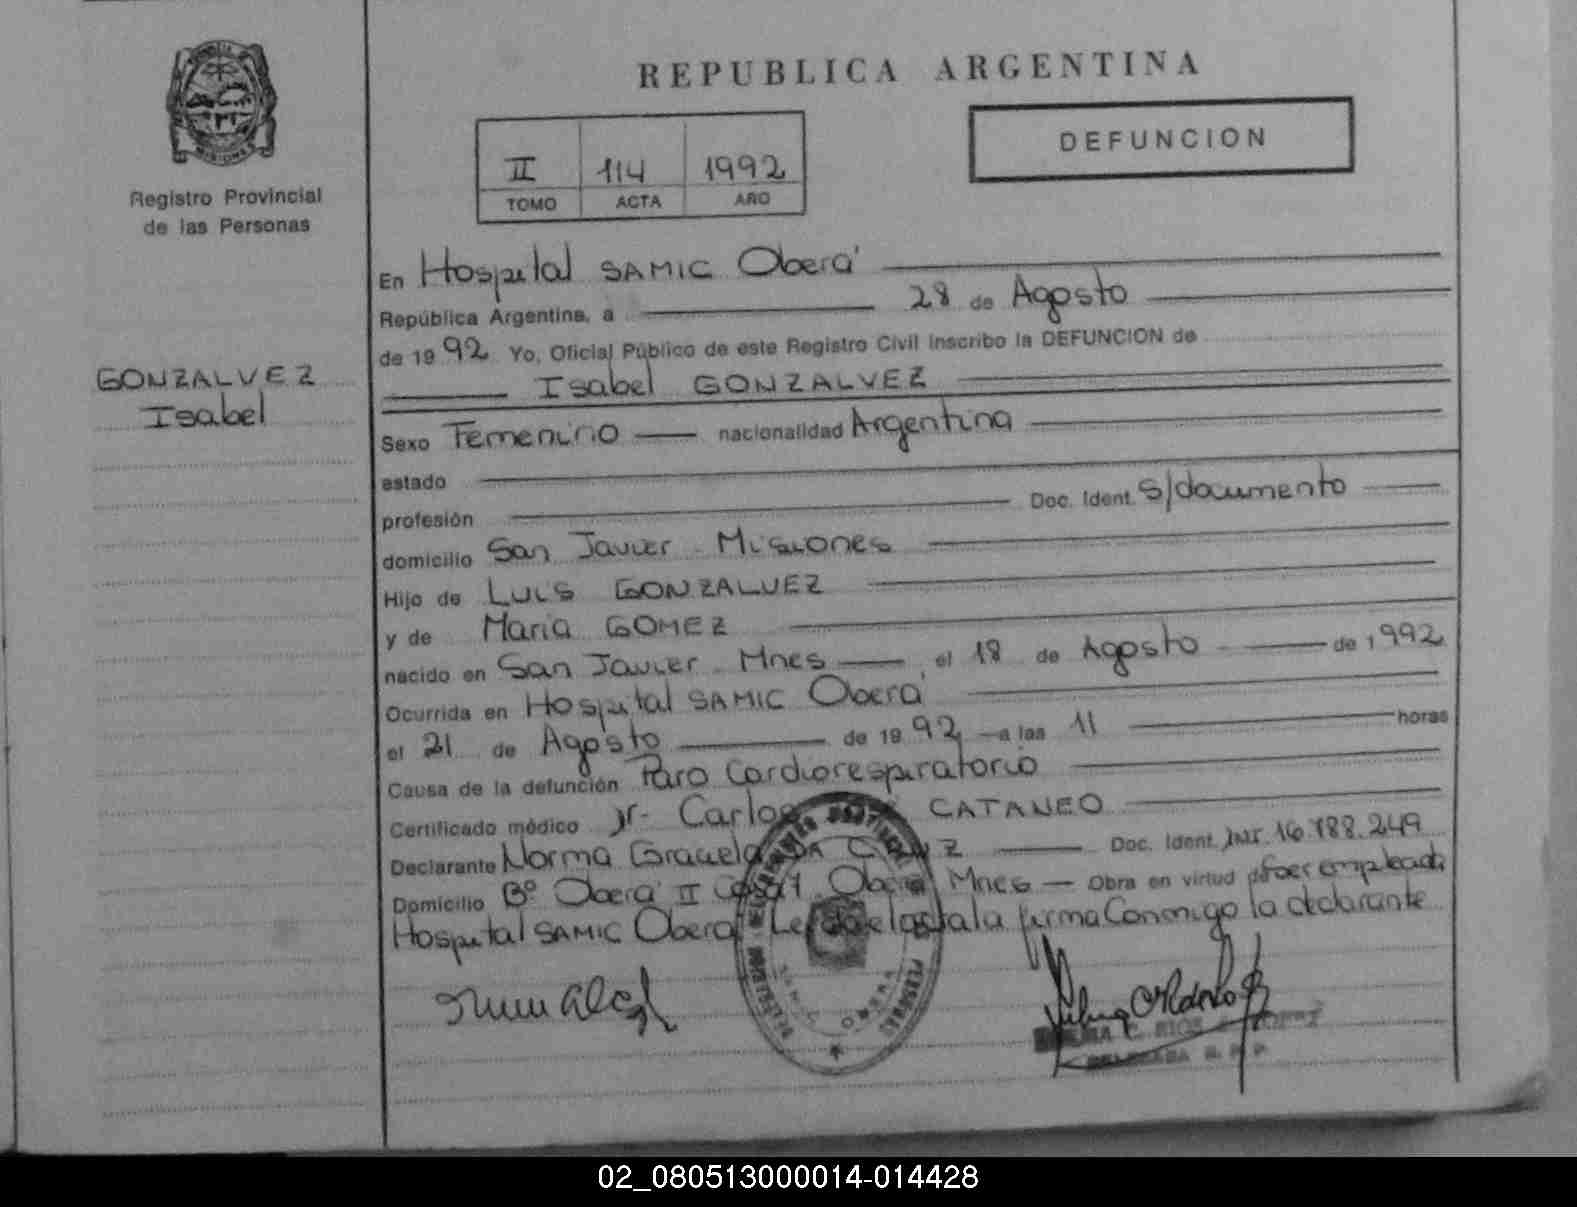 REPUBLICA ARGENTINA
MISIONES
Registro Provincial
de las Personas
II 114 1992
TOMO ACTA AÑO
DEFUNCION
GONZALVEZ
Isabel
En Hospital SAMIC Oberá
República Argentina, a 28 de Agosto
de 1992 Yo, Oficial Público de este Registro Civil inscribo la DEFUNCION de
Isabel GONZALVEZ
Sexo Femenino nacionalidad Argentina
estado
profesión Doc. Ident. S/documento
domicilio San Javier - Misiones
Hijo de Luis GONZALVEZ
y de Maria GOMEZ
nacido en San Javier - Mnes el 18 de Agosto de 1992
Ocurrida en Hospital SAMIC Oberá
el 21 de Agosto de 1992 a las 11 horas
Causa de la defunción Paro Cardiorespiratorio
Certificado médico Dr. Carlos CATANEO
Declarante Norma Graciela Doc. Ident. 16.788.249
Domicilio Bº Oberá II Casa 1 Oberá Mnes Obra en virtud de ser empleada
Hospital SAMIC Oberá Leida el acta la firma Conmigo la declarante
02_080513000014-014428